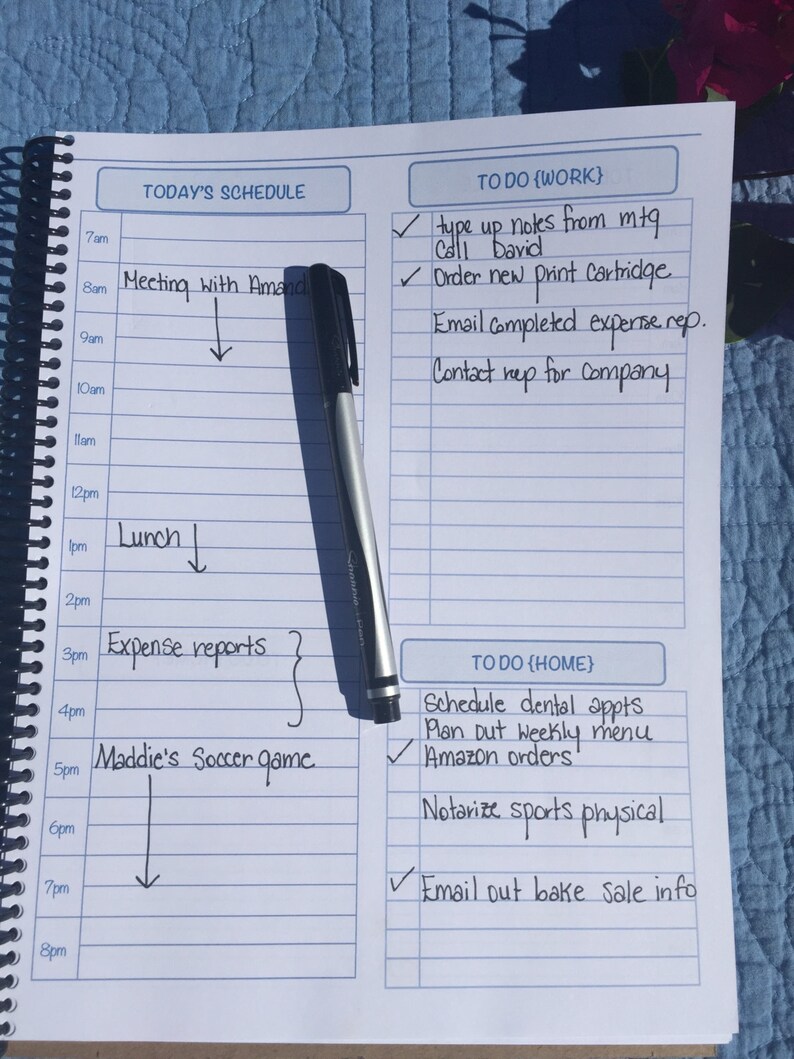 TODAY'S SCHEDULE
7am
8am Meeting with Amand
9am
10am
11am
12pm
1pm Lunch
2pm
3pm Expense reports
4pm
5pm Maddie's Soccer game
6pm
7pm
8pm
TO DO {WORK}
type up notes from mtg
Call David
Order new print cartridge
Email completed expense rep.
Contact rep for company
TO DO {HOME}
Schedule dental appts
Plan out weekly menu
Amazon orders
Notarize sports physical
Email out bake sale info